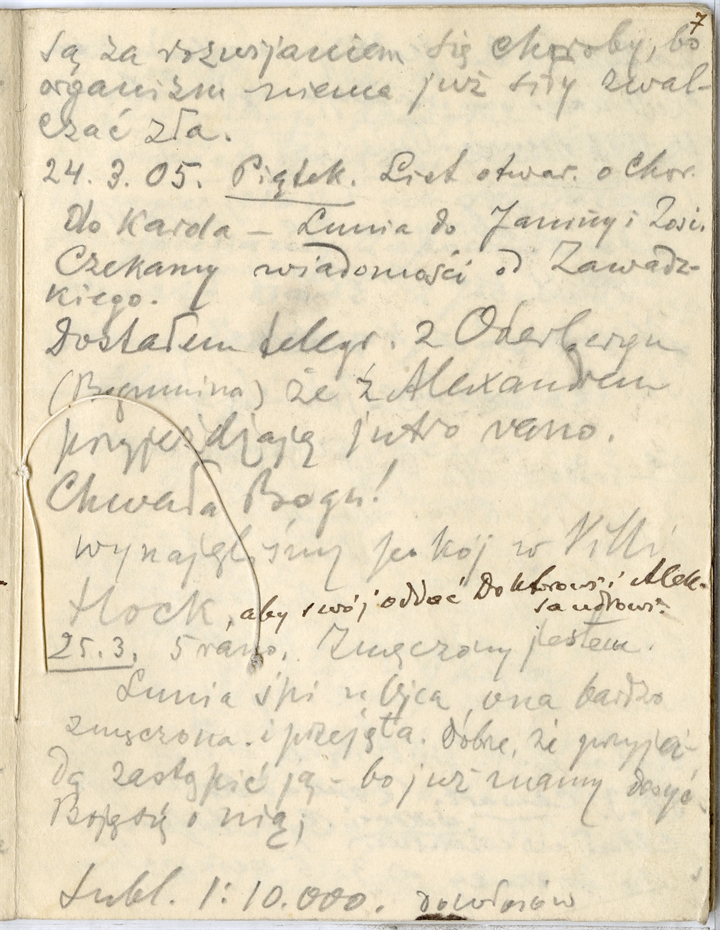 7
są za rozwijaniem się choroby, bo
organizm niema już siły zwal-
czać zła.
24. 3. 05. Piątek. List otwar. o chor.
do Karola – Lunia do Janiny i Zosi.
Czekamy wiadomości od Zawadz-
kiego.
Dostałem telegr. z Oderbergu
(Bogumina) że z Alexandrem
przyjeżdżają jutro rano.
Chwała Bogu!
wynajęliśmy pokój w Villi
Hock, aby swój oddać Doktorowi i Alek-
sandrowi.
25.3. 5 rano. Zmęczony jestem.
Lunia śpi u Ojca, ona bardzo
zmęczona i przejęta. Dobrze, że przyja-
dą zastąpić ją – bo już mamy dosyć.
Boję się o nią;
Subl. 1:10.000.